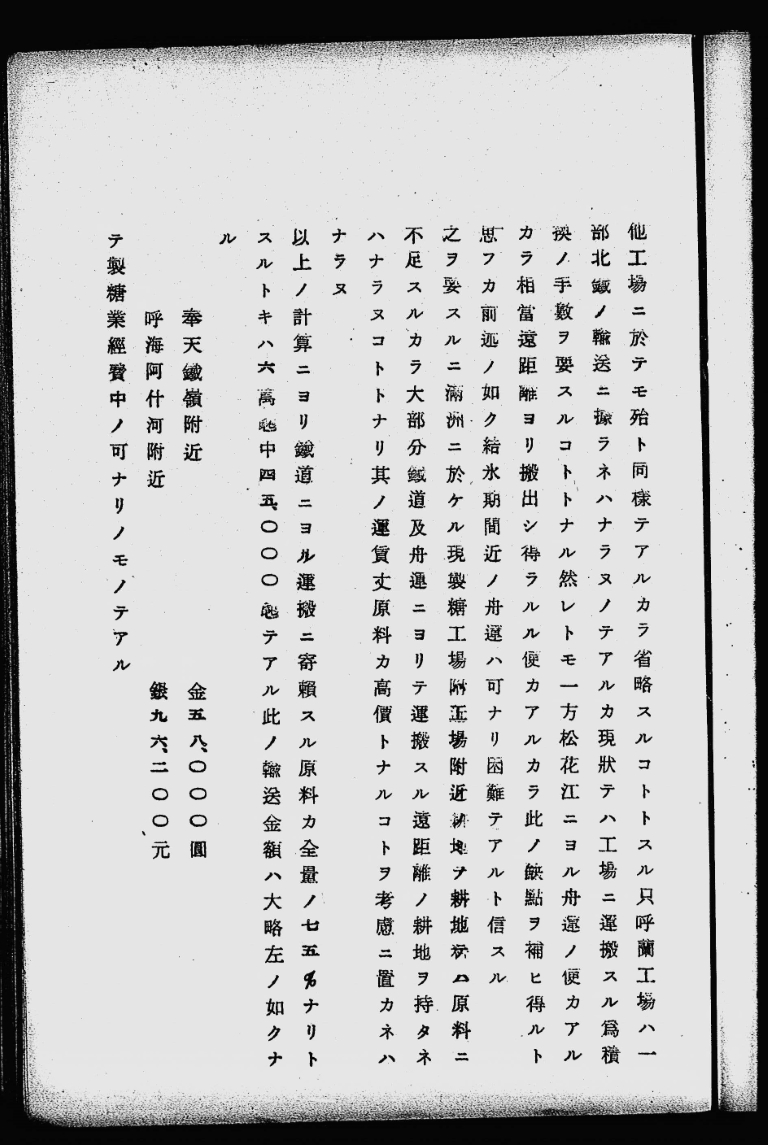 他工場ニ於テモ殆ト同樣テアルカラ省略スルコトトスル只呼蘭工場ハ一
部北鐵ノ輸送ニ據ラネハナラヌノテアルカ現狀テハ工場ニ運搬スル爲積
換ノ手數ヲ要スルコトトナル然レトモ一方松花江ニヨル舟運ノ便カアル
カラ相當遠距離ヨリ搬出シ得ラルル便カアルカラ此ノ缺點ヲ補ヒ得ルト
思フカ前述ノ如ク結氷期間近ノ舟運ハ可ナリ困難テアルト信スル
之ヲ要スルニ滿洲ニ於ケル現製糖工場附工場附近ノ耕地テハ原料ニ
不足スルカラ大部分鐵道及舟運ニヨリテ運搬スル遠距離ノ耕地ヲ持タネ
ハナラヌコトトナリ其ノ運賃丈原料カ高價トナルコトヲ考慮ニ置カネハ
ナラヌ
以上ノ計算ニヨリ鐵道ニヨル運搬ニ寄賴スル原料カ全量ノ七五%ナリト
スルトキハ六萬瓲中四五、〇〇〇瓲テアル此ノ輸送金額ハ大略左ノ如クナ
ル
奉天鐵嶺附近 金五八、〇〇〇圓
呼海阿什河附近 銀九六、二〇〇元
テ製糖業經費中ノ可ナリノモノテアル